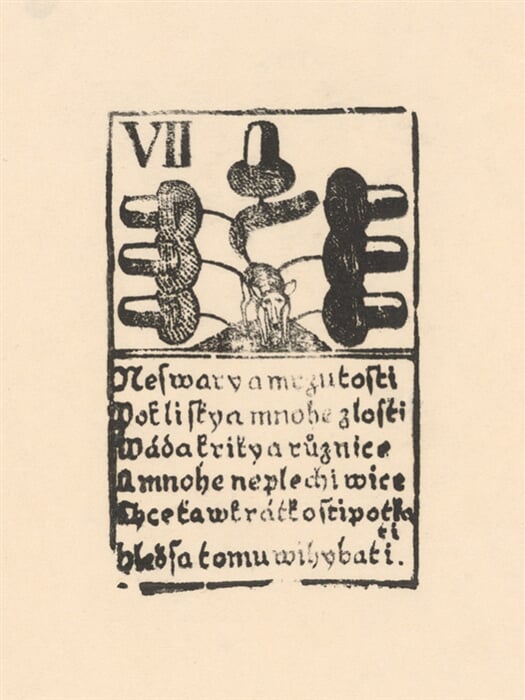 VII
Neswary a mrzutosti
Pokliſky a mnohe zlosti
Wáda kriky a růžnice
A mnohe neplechi wice
Chce ťa w krátkosti potka
ti
hleď ſa tomu wihybati.